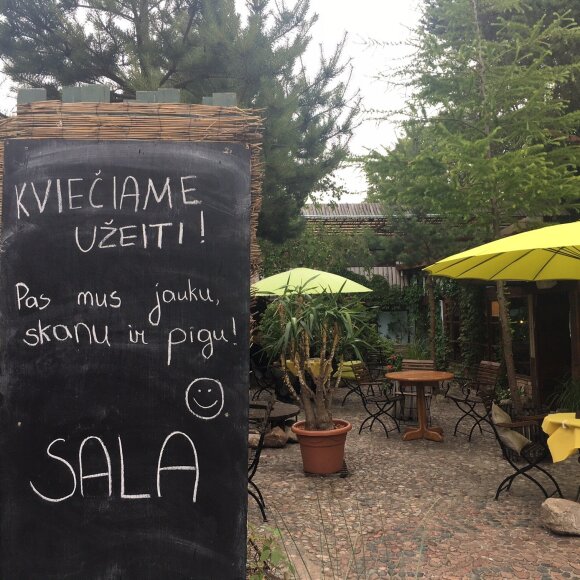 KVIEČIAME
UŽEITI!
Pas mus jauku,
skanu ir pigu!
SALA